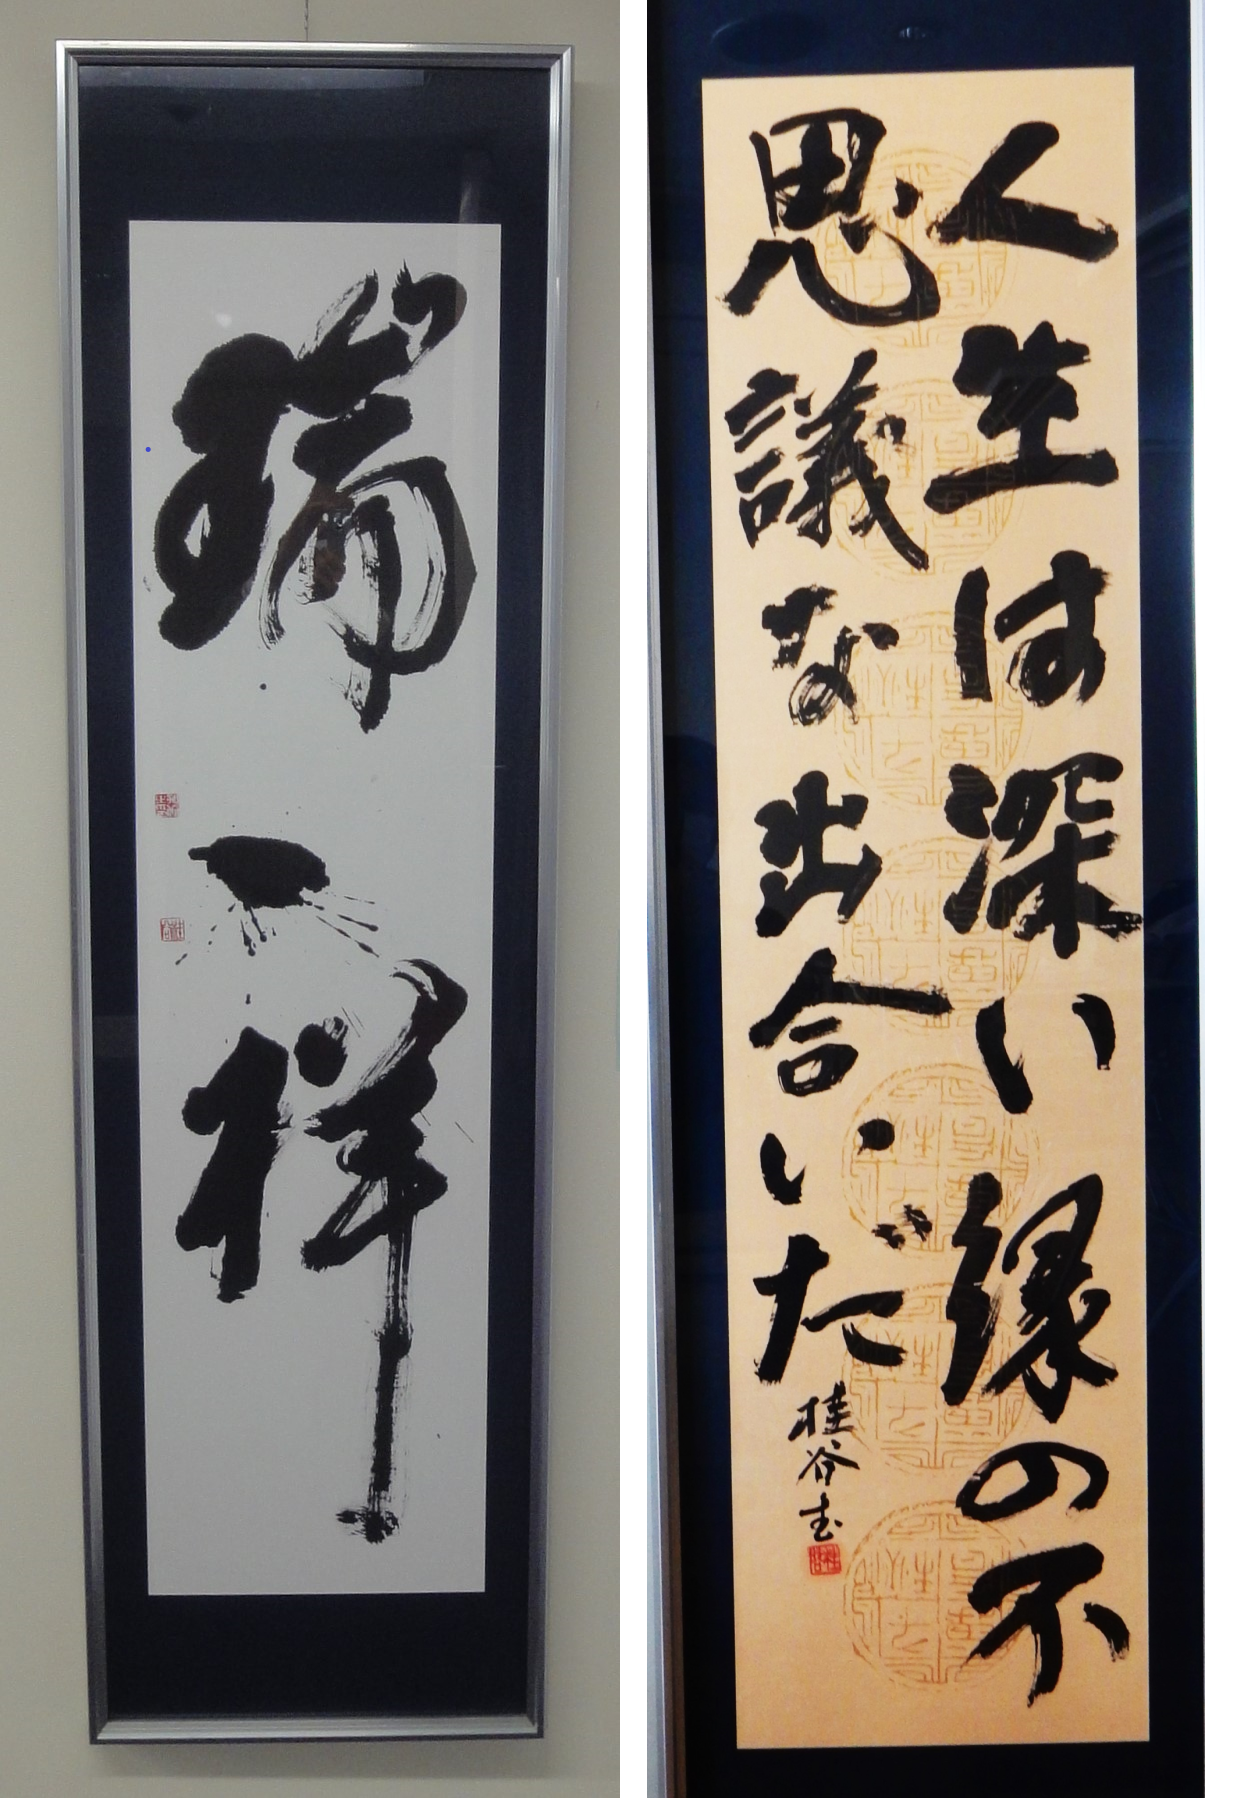 瑞祥
人生は深い縁の不
思議な出合いだ
桂谷書